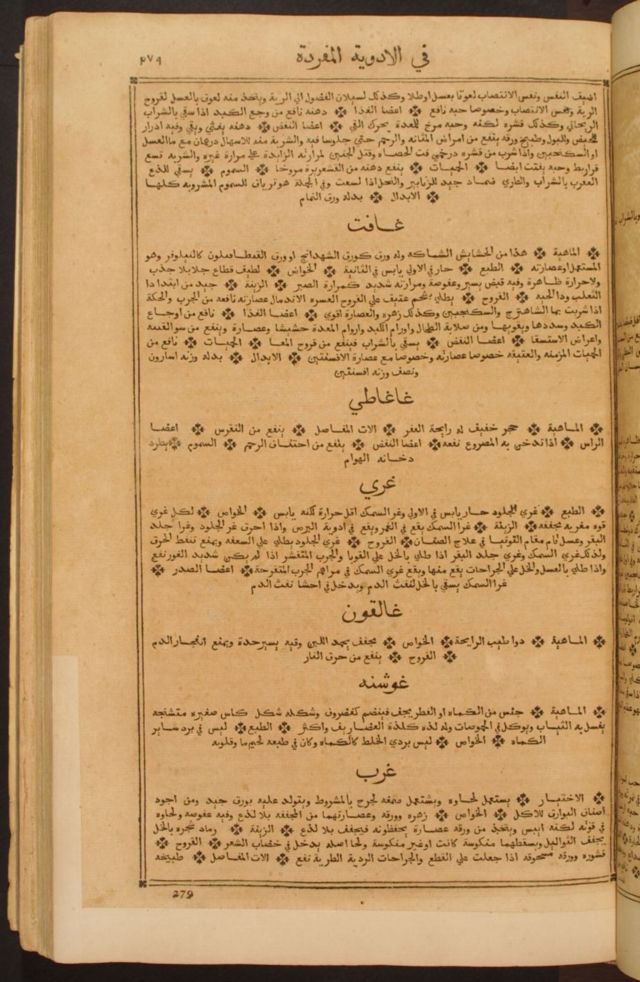 في الادوية المفردة ٢٧٩
لضيق النفس ونفس الانتصاب لعوقا بعسل اوطلا وكذلك لسيلان الفضول الي الرية ويتخذ منه لعوق بالعسل لقروح
الرية ونفس الانتصاب وخصوصا حبه نافع ✤ اعضا الغذا ✤ دهنه نافع من وجع الكبد اذا سقي بالشراب
الريحاني وكذلك قشره لكنه وحبه مرخ للمعدة يحرك القي ✤ اعضا النفض ✤ دهنه يغثي ويقي وفيه ادرار
للحيض والبول وطبيخ ورقه ينفع من امراض المثانه والرحم حتي جلوسا فيه والشربه منه للاسهال درهمان مع ما العسل
او السكنجبين واذا شرب من قشره درخمي فت الحصاه وقتل الجنين لمرارته الزايدة علي مرارة غيره والشربه تسع
قراريط وحبه يفتت ايضا ✤ الحميات ✤ ينفع دهنه من القشعريرة مروخا ✤ السموم ✤ يسقي للدغ
العقرب بالشراب والطري ضماد جيد للزنابير والنحل اذا لسعت وفي الجملة هو ترياق للسموم المشروبه كلها
✤ الابدال ✤ بدله ورق النمام
غافت
✤ الماهية ✤ هذا من الحشايش الشاكه وله ورق كورق الشهدانج او ورق القنطافيلون كالنيلوفر وهو
المستعمل او عصارته ✤ الطبع ✤ حار في الاولي يابس في الثانية ✤ الخواص ✤ لطيف قطاع جلا بلا جذب
ولا حرارة ظاهرة وفيه قبض يسير وعفوصة ومرارته شديد كمرارة الصبر ✤ الزينة ✤ جيد من ابتدا دا
الثعلب ودا الحيه ✤ القروح ✤ يطلي بشحم عتيق علي القروح العسره الاندمال عصارته نافعه من الجرب والحكة
اذا شربت بما الشاهترج والسكنجبين وكذلك زهره والعصارة اقوي ✤ اعضا الغذا ✤ نافع من اوجاع
الكبد وسددها ويقويها ومن صلابة الطحال واورام الكبد واورام المعدة حشيشا وعصارة وينفع من سو القنيه
واعراض الاستسقا ✤ اعضا النفض ✤ يسقي بالشراب فينفع من قروح المعا ✤ الحميات ✤ نافع من
الحميات المزمنه والعتيقه خصوصا عصارته وخصوصا مع عصارة الافسنتين ✤ الابدال ✤ بدله وزنه اسارون
ونصف وزنه افسنتين
غاغاطي
✤ الماهية ✤ حجر خفيف له رايحة القفر ✤ الات المفاصل ✤ ينفع من النقرس ✤ اعضا
الراس ✤ اذا تدخن به المصروع نفعه ✤ اعضا النفض ✤ ينفع من اختناق الرحم ✤ السموم ✤ يطرد
دخانه الهوام
غري
✤ الطبع ✤ غري الجلود حار يابس في الاولي وغر السمك اقل حرارة لكنه يابس ✤ الخواص ✤ لكل غري
قوه مغريه مجففه ✤ الزينة ✤ غرا السمك يقع في ويقع في ادوية البرص واذا احرق غر الجلود وغرا جلد
البقر وغسل قام مقام التوتيا في علاج ✤ القروح ✤ غري الجلود يطلي علي السعفه ويمنع تنفط الحرق
ولذلك غري السمك وغري جلد البقر اذا طلي بالخل علي القوبا والجرب المتقشر اذا لم يكن شديد الغور نفع
واذا طلي بالعسل والخل علي الجراحات نفع منها ويقع غري السمك في مراهم الجرب المتقرحة ✤ اعضا الصدر ✤
غرا السمك يسقي بالخل لنفث الدم ويدخل في احشا نفث الدم
غالقون
✤ الماهية ✤ دوا طيب الرايحة ✤ الخواص ✤ مجفف يجمد اللبن وفيه يسير حدة ويمنع انفجار الدم
✤ القروح ✤ ينفع من حرق النار
غوشنه
✤ الماهية ✤ جنس من الكماه او الفطر يجف فينضم كغضروف وشكله شكل كاس صغيره متشنجه
يغسل به الثياب ويوكل في الحموضات وله لذه كلذة الغضاريف واكثر ✤ الطبع ✤ ليس في برد ساير
الكماه ✤ الخواص ✤ ليس بردي الخلط كالكماه وكان في طبعه
غرب
✤ الاختيار ✤ يستعمل لحاوه ويستعمل صمغه تجرح بالمشروط ويتولد عليه بورق جيد ومن اجود
اصناف البوارق للاكل ✤ الخواص ✤ زهره وورقه وعصارتهما من المجففه بلا لذع وفيه عفوصه ولحاوه
في قوته لكنه ايبس ويتخذ من ورقه عصارة يجففونه فيجفف بلا لذع ✤ الزينة ✤ رماد شجره بالخل
يجفف الثواليل ويسقطها منكوسة كانت او غير منكوسة ولحا اصله يدخل في خضاب الشعر ✤ القروح ✤
قشوره وورقه مسحوقه اذا جعلت علي القطع والجراحات الردية الطرية نفع ✤ الات المفاصل ✤ طبيخه
279